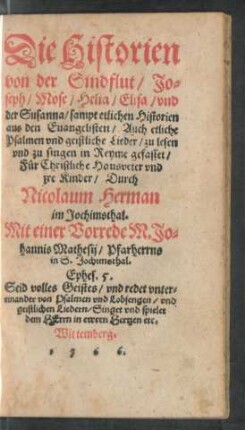 Die Historien
von der Sindflut/ Jo-
seph/ Mose/ Helia/ Elisa/ vnd
der Susanna/ sampt etlichen Historien
aus den Euangelisten/ Auch etliche
Psalmen vnd geistliche Lieder/ zu lesen
vnd zu singen in Reyme gefasset/
Für Christliche Hausveter vnd
jre Kinder/ Durch
Nicolaum Herman
im Jochimsthal.
Mit einer Vorrede M. Jo-
hannis Mathesij/ Pfarherrns
in S. Jochimsthal.
Ephes. 5.
Seid volles Geistes/ vnd redet vnter-
einander von Psalmen vnd Lobsengen/ vnd
geistlichen Liedern/ Singet vnd spielet
dem HErrn in ewren Hertzen etc.
Wittemberg.
1566.